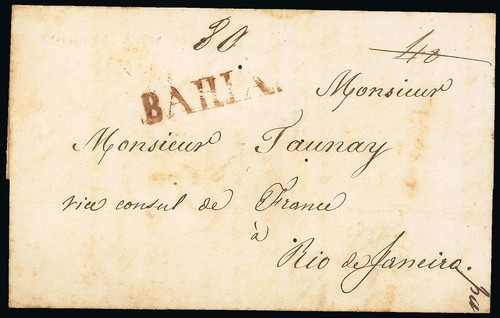 80
40
BAHIA.
Monsieur
Monsieur Taunay
vice consul de France
à
Rio de Janeiro.